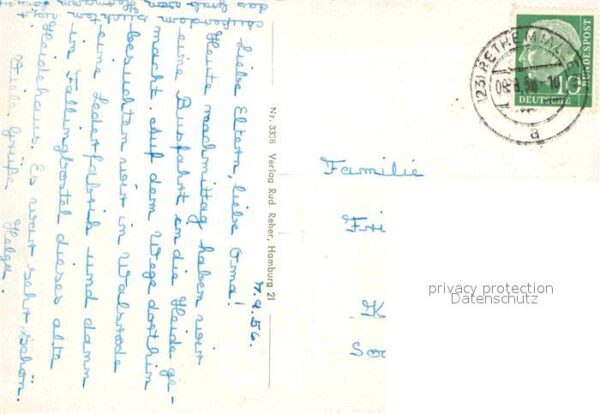 7.9.56.
Liebe Eltern, liebe Oma!
Heute nachmittag haben wir
eine Busfahrt in die Heide ge-
macht. Auf dem Wege dorthin
besuchten wir in Walsrode
eine Lederfabrik und dann
in Fallingbostel dieses alte
Heidehaus. Es war sehr schön.
Viele Grüße Helga.
Nr. 3326 Verlag Rud. Reher, Hamburg 21
(23) RETHEM (ALLER)
a
DEUTSCHE BUNDESPOST
10
Familie
privacy protection
Datenschutz